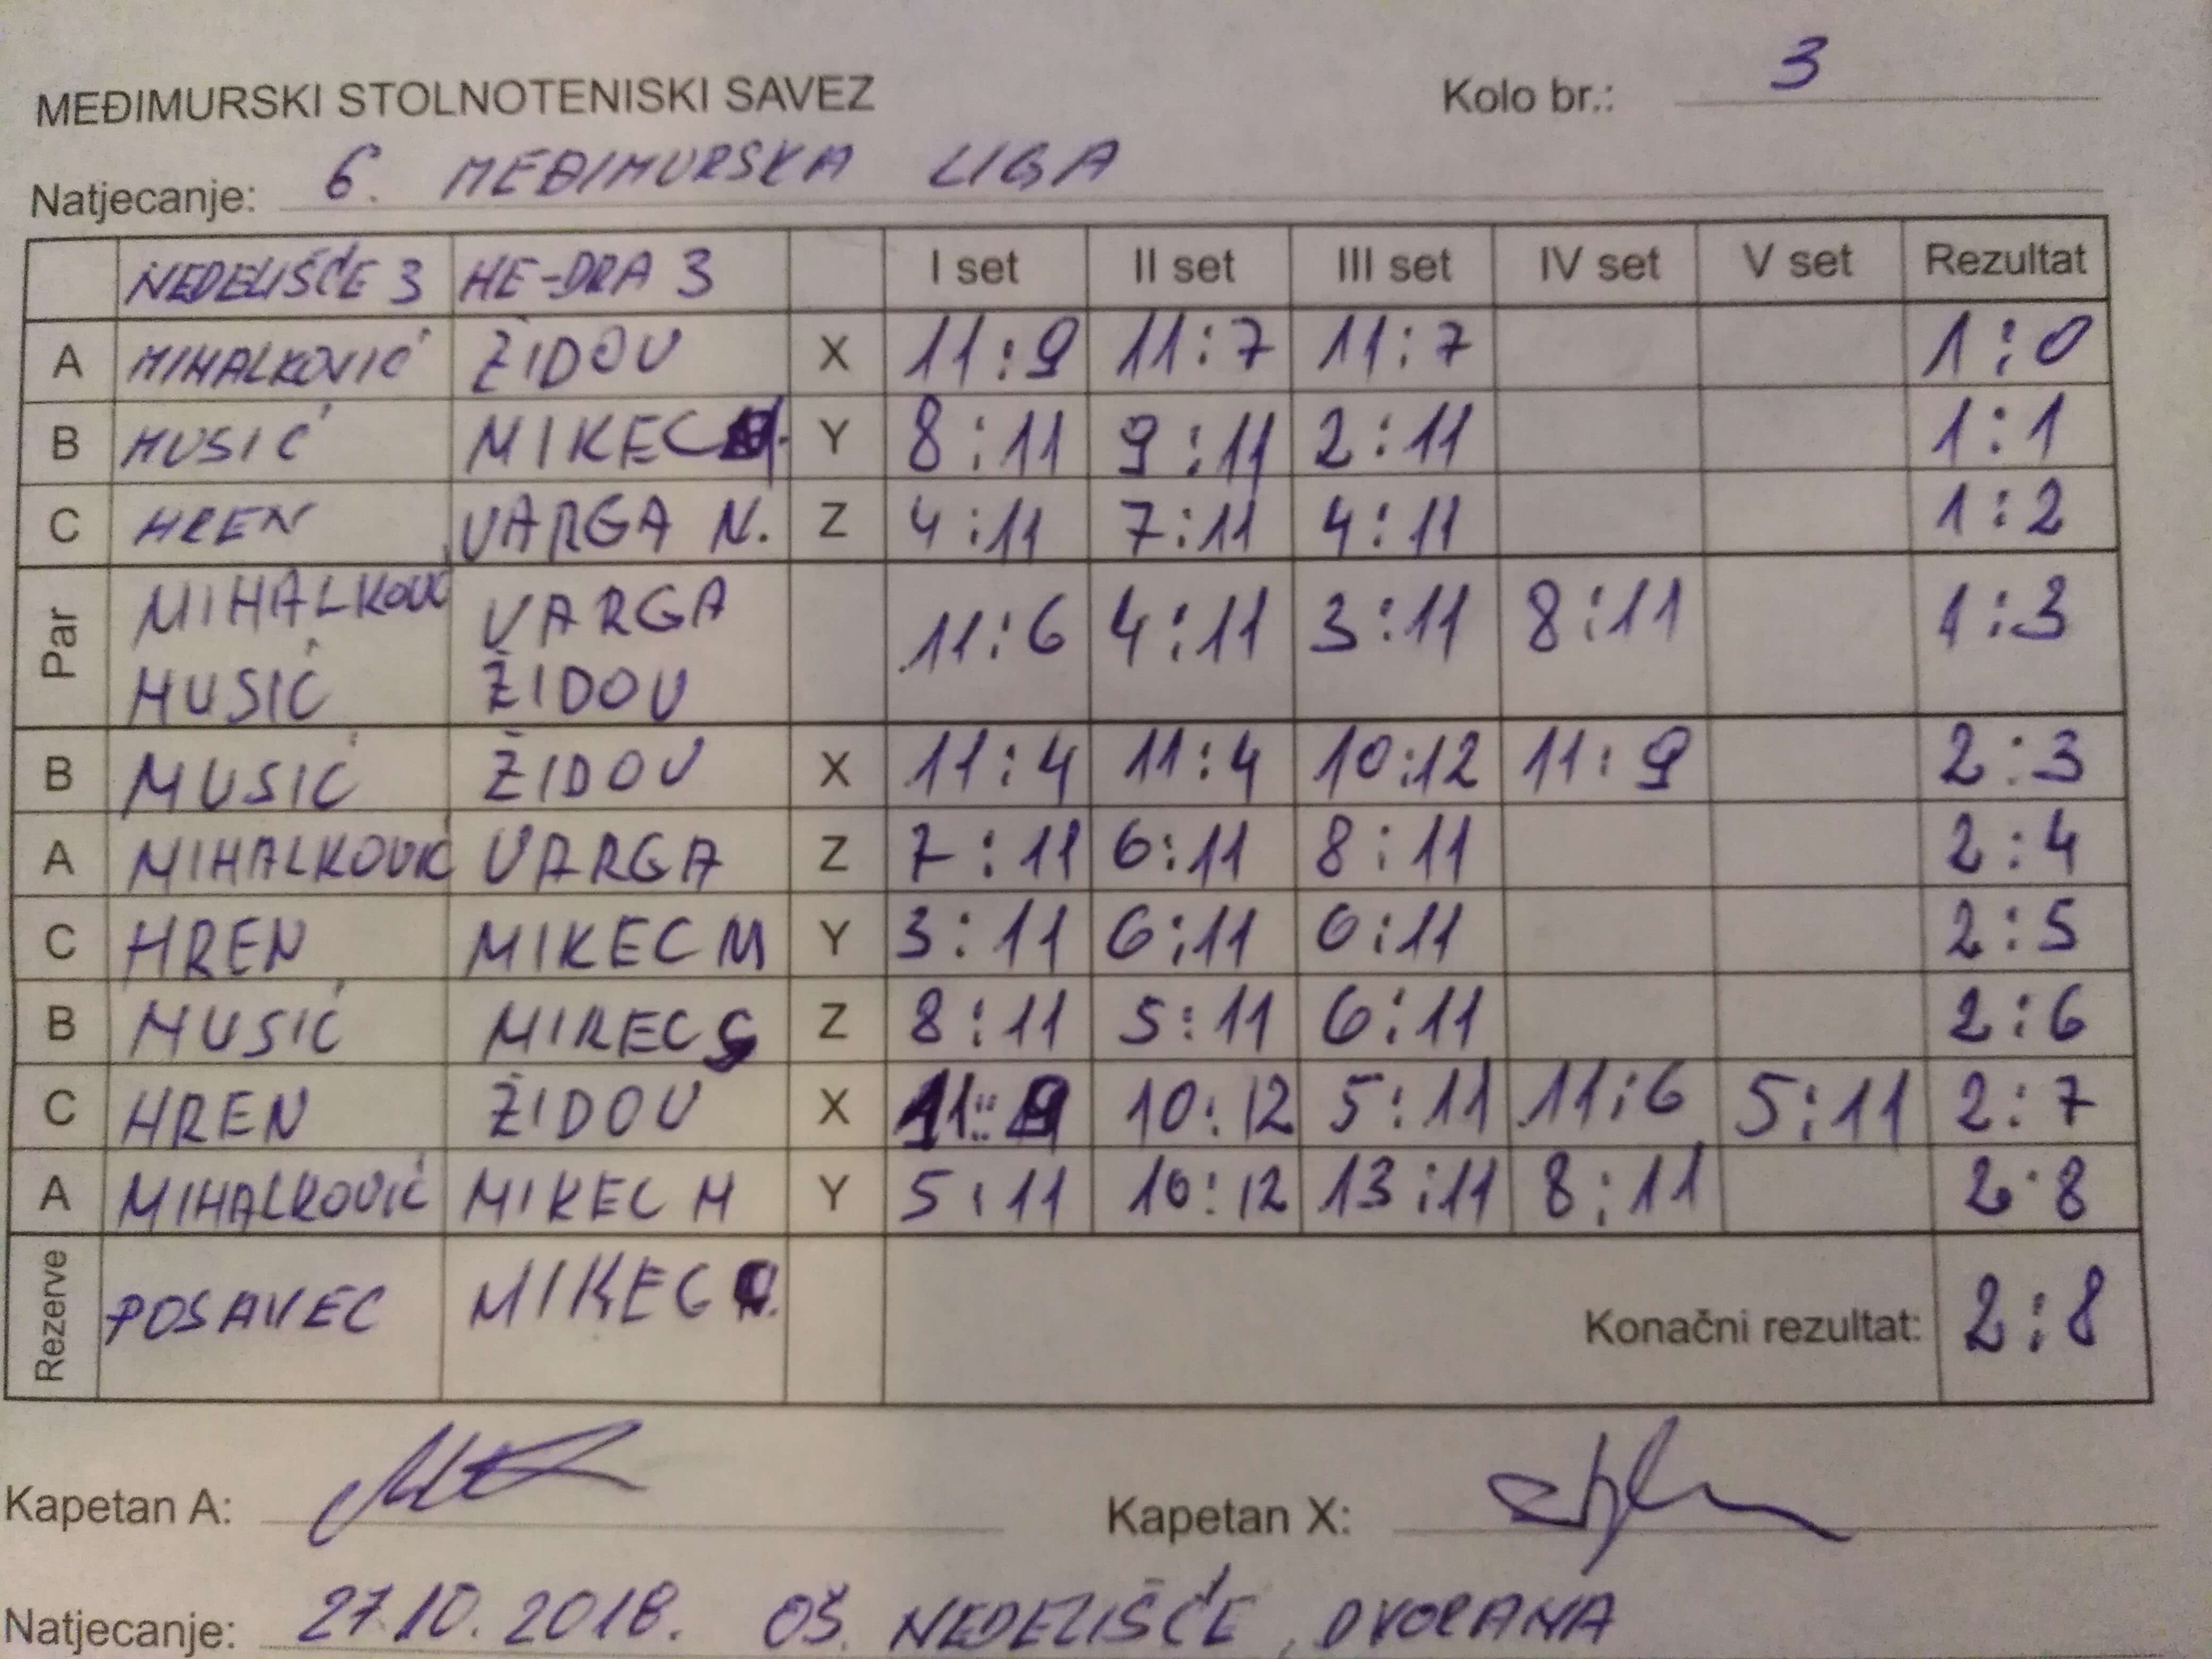 MEĐIMURSKI STOLNOTENISKI SAVEZ Kolo br.: 3
Natjecanje: 6. MEĐIMURSKA LIGA
NEDELIŠĆE 3 HE-DRA 3 I set II set III set IV set V set Rezultat
A MIHALKOVIĆ ŽIDOV X 11:9 11:7 11:7 1:0
B MUSIĆ MIKEC Y 8:11 9:11 2:11 1:1
C HREN VARGA N. Z 4:11 7:11 4:11 1:2
Par MIHALKOVIĆ VARGA 11:6 4:11 3:11 8:11 1:3
MUSIĆ ŽIDOV
B MUSIĆ ŽIDOV X 11:4 11:4 10:12 11:9 2:3
A MIHALKOVIĆ VARGA Z 7:11 6:11 8:11 2:4
C HREN MIKEC M Y 3:11 6:11 6:11 2:5
B MUSIĆ MIKEC Z 8:11 5:11 6:11 2:6
C HREN ŽIDOV X 11:9 10:12 5:11 11:6 5:11 2:7
A MIHALKOVIĆ MIKEC M Y 5:11 10:12 13:11 8:11 2:8
Rezerve POSAVEC MIKEC Konačni rezultat: 2:8
Kapetan A: Kapetan X:
Natjecanje: 27.10.2018. OŠ. NEDELIŠĆE, DVORANA